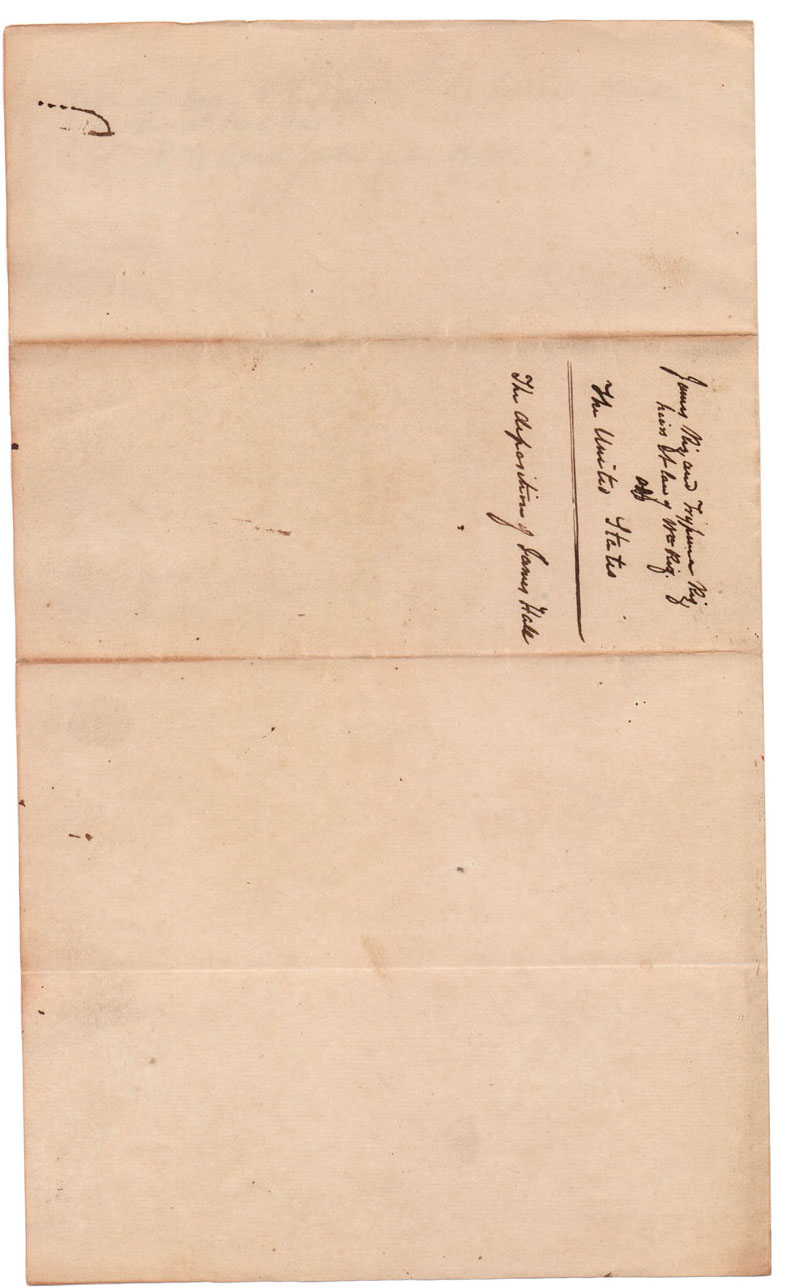 James Rig and Tryphena Rig,
heirs at law of Wm Rig. &
The United States
The deposition of James Hale